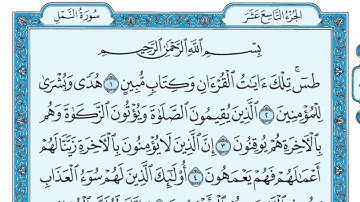 سُورَةُ النَّمْلِ
الجُزْءُ التَّاسِعَ عَشَرَ
بِسْمِ اللَّهِ الرَّحْمَٰنِ الرَّحِيمِ
طسٓ ۚ تِلْكَ ءَايَٰتُ الْقُرْءَانِ وَكِتَابٍ مُّبِينٍ ١ هُدًى وَبُشْرَىٰ
لِلْمُؤْمِنِينَ ٢ الَّذِينَ يُقِيمُونَ الصَّلَوٰةَ وَيُؤْتُونَ الزَّكَوٰةَ وَهُم
بِالْءَاخِرَةِ هُمْ يُوقِنُونَ ٣ إِنَّ الَّذِينَ لَا يُؤْمِنُونَ بِالْءَاخِرَةِ زَيَّنَّا لَهُمْ
أَعْمَٰلَهُمْ فَهُمْ يَعْمَهُونَ ٤ أُو۟لَٰٓئِكَ الَّذِينَ لَهُمْ سُوٓءُ الْعَذَابِ